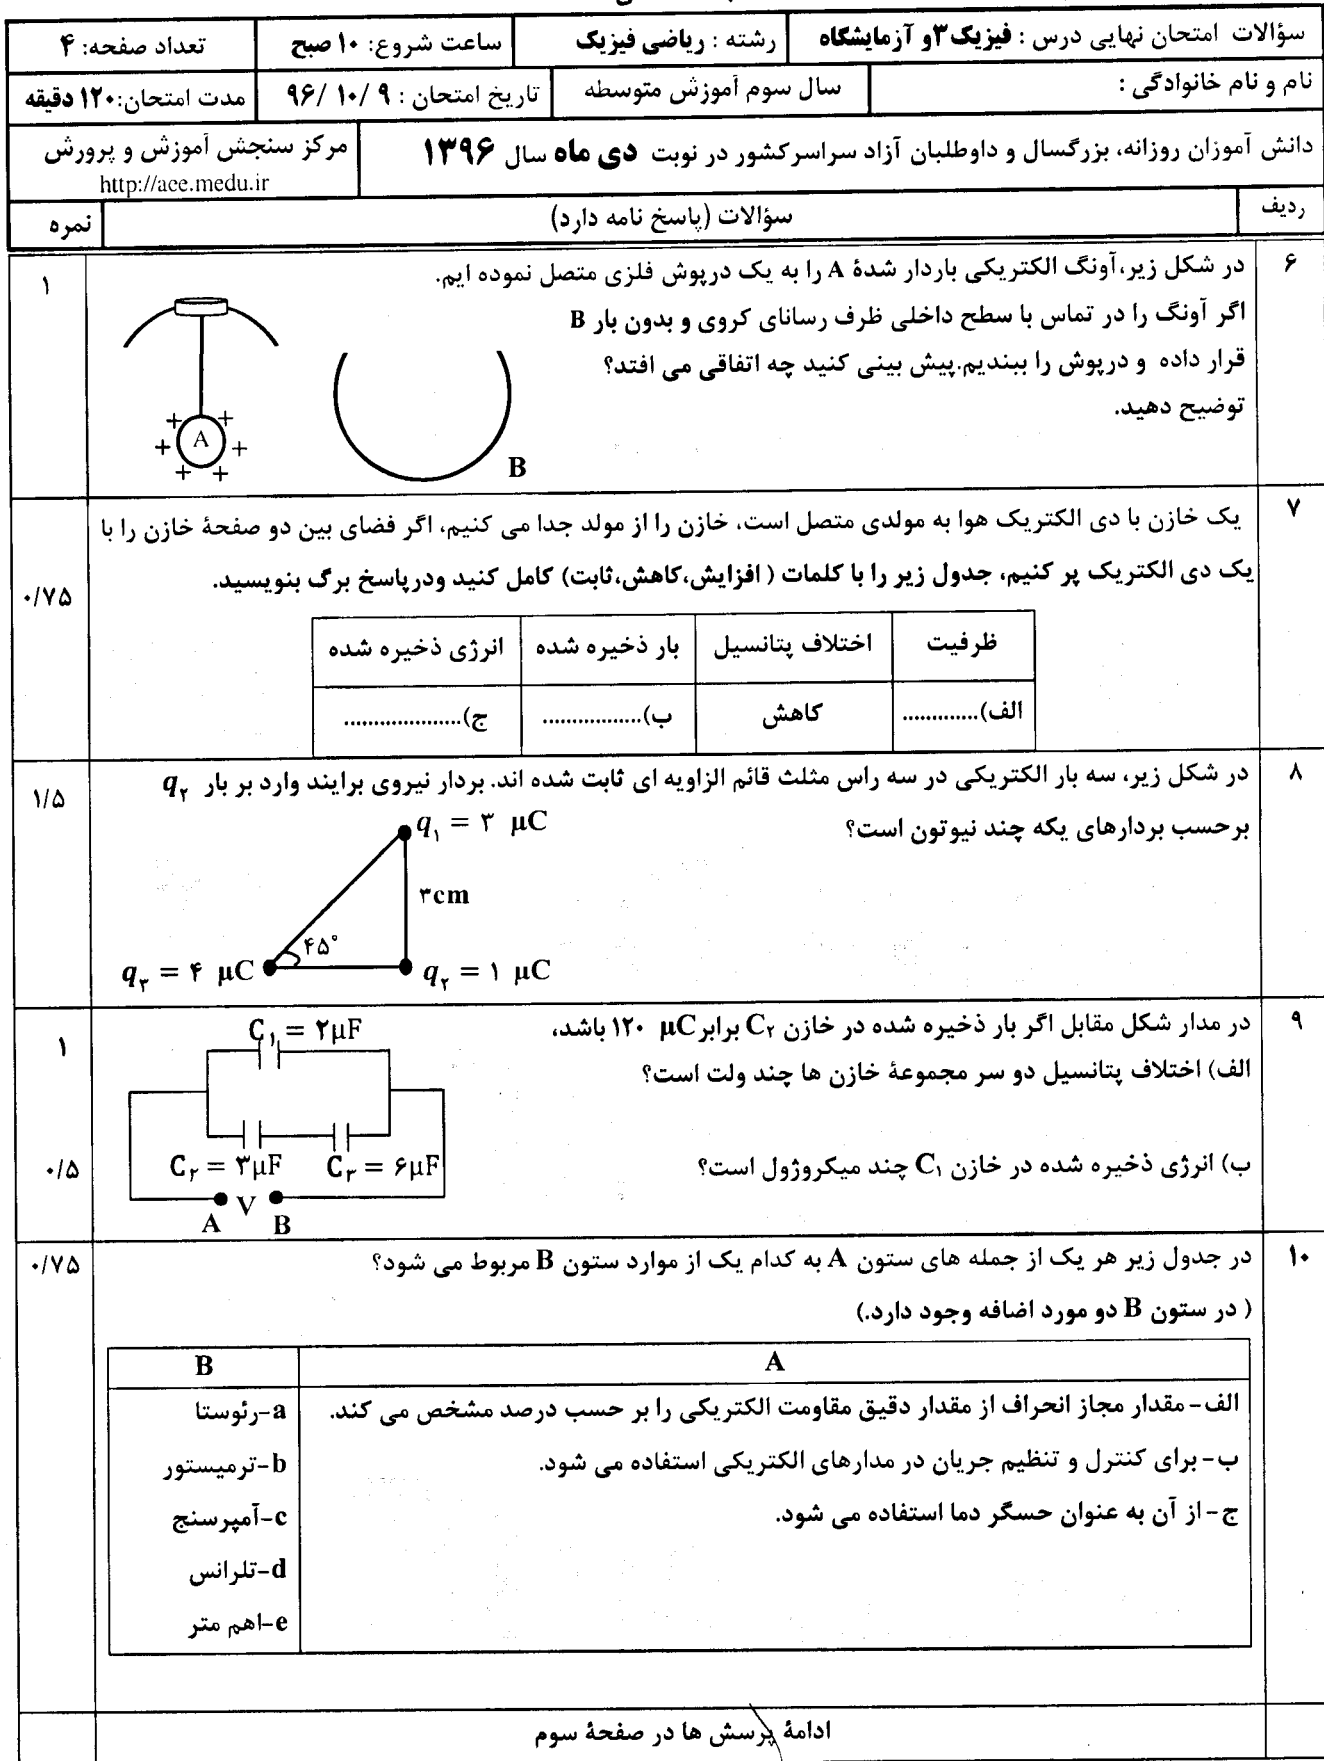 سؤالات امتحان نهایی درس : فیزیک ۳ و آزمایشگاه رشته : ریاضی فیزیک ساعت شروع: ۱۰ صبح تعداد صفحه: ۴
نام و نام خانوادگی : سال سوم آموزش متوسطه تاریخ امتحان : ۹ /۱۰ /۹۶ مدت امتحان:۱۲۰ دقیقه
دانش آموزان روزانه، بزرگسال و داوطلبان آزاد سراسر کشور در نوبت دی ماه سال ۱۳۹۶ مرکز سنجش آموزش و پرورش
http://aee.medu.ir
ردیف سؤالات (پاسخ نامه دارد) نمره
۶ در شکل زیر،آونگ الکتریکی باردار شدۀ A را به یک درپوش فلزی متصل نموده ایم. ۱
اگر آونگ را در تماس با سطح داخلی ظرف رسانای کروی و بدون بار B
قرار داده و درپوش را ببندیم.پیش بینی کنید چه اتفاقی می افتد؟
توضیح دهید.
+ + + A + + +
B
۷ یک خازن با دی الکتریک هوا به مولدی متصل است، خازن را از مولد جدا می کنیم، اگر فضای بین دو صفحۀ خازن را با
یک دی الکتریک پر کنیم، جدول زیر را با کلمات ( افزایش،کاهش،ثابت) کامل کنید ودرپاسخ برگ بنویسید. ۰/۷۵
ظرفیت اختلاف پتانسیل بار ذخیره شده انرژی ذخیره شده
الف)............. کاهش ب)................. ج).....................
۸ در شکل زیر، سه بار الکتریکی در سه راس مثلث قائم الزاویه ای ثابت شده اند. بردار نیروی برایند وارد بر بار q۲ ۱/۵
برحسب بردارهای یکه چند نیوتون است؟
q۱ = ۳ µC
۳cm
۴۵°
q۳ = ۴ µC q۲ = ۱ µC
۹ در مدار شکل مقابل اگر بار ذخیره شده در خازن C۲ برابر ۱۲۰ µC باشد،
الف) اختلاف پتانسیل دو سر مجموعۀ خازن ها چند ولت است؟ ۱
ب) انرژی ذخیره شده در خازن C۱ چند میکروژول است؟ ۰/۵
C۱ = ۲µF
C۲ = ۳µF C۳ = ۶µF
A V B
۱۰ در جدول زیر هر یک از جمله های ستون A به کدام یک از موارد ستون B مربوط می شود؟ ۰/۷۵
( در ستون B دو مورد اضافه وجود دارد.)
A B
الف- مقدار مجاز انحراف از مقدار دقیق مقاومت الکتریکی را بر حسب درصد مشخص می کند. a-رئوستا
ب- برای کنترل و تنظیم جریان در مدارهای الکتریکی استفاده می شود. b-ترمیستور
ج- از آن به عنوان حسگر دما استفاده می شود. c-آمپرسنج
d-تلرانس
e-اهم متر
ادامۀ پرسش ها در صفحۀ سوم